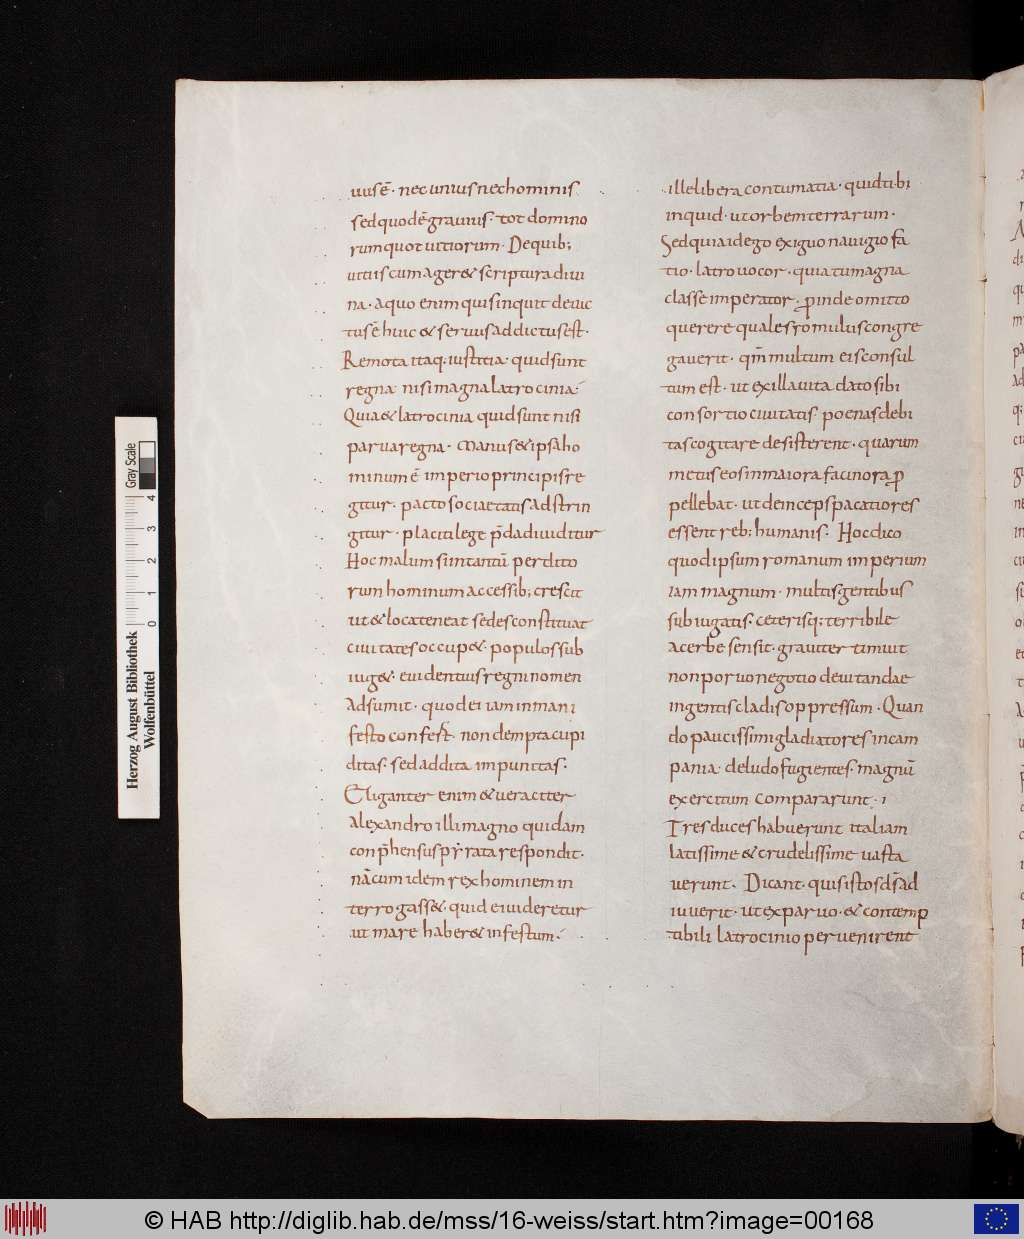 uusē· nec unius nec hominis
sed quod ē grauius· tot domino
rum quot uitiorum· De quib;
uitiis cum ager& scriptura diui
na· a quo enim quis inquit deuic
tus ē huic & seruus addictus est·
Remota itaq· iustitia quid sunt
regna nisi magna latrocinia
Quia & latrocinia quid sunt nisi
parua regna· Manus & ipsa ho
minum ē imperio principis re
gitur· pacto sociaetatis adstrin
gitur· placiti lege p̄da diuiditur
Hoc malum si intantū perdito
rum hominum accessib; crescit
ut & loca teneat sedes constituat
ciuitates occup&· populos sub
iug&· euidentius regni nomen
adsumit· quod ei iam in mani
festo confert· non dempta cupi
ditas· sed addita impunitas·
Eliganter enim & ueraciter
alexandro illi magno quidam
conp̄hensus pyrata respondit·
nā cum idem rex hominem in
terrogass&· quid ei uideretur
ut mare haber& infestum·
ille libera contumatia· quid tibi
inquid· ut orbem terrarum·
Sed quia id ego exiguo nauigio fa
tio· latro uocor· quia tu magna
classe imperator· proinde omitto
querere quales romulus congre
gauerit· qm̄ multum eis consul
tum est· ut ex illa uita dato sibi
consortio ciuitatis· poenas debi
tas cogitare desisterent· quarum
metus eos in maiora facinora pro
pellebat· ut deinceps pacatiores
essent reb; humanis· Hoc dico
quod ipsum romanum imperium
iam magnum· multis gentibus
subiugatis· ceterisq; terribile
acerbe sensit· grauiter timuit
non paruo negotio deuitandae
ingentis cladis oppressum· Quan
do paucissimi gladiatores in cam
pania· de ludo fugientes· magnū
exercitum compararunt·
Tres duces habuerunt italiam
latissime & crudelissime uasta
uerunt· Dicant· quis istos ds̄ ad
iuuerit· ut ex paruo· & contemp
tibili latrocinio peruenirent
Gray Scale
0 1 2 3 4
Herzog August Bibliothek
Wolfenbüttel
© HAB http://diglib.hab.de/mss/16-weiss/start.htm?image=00168